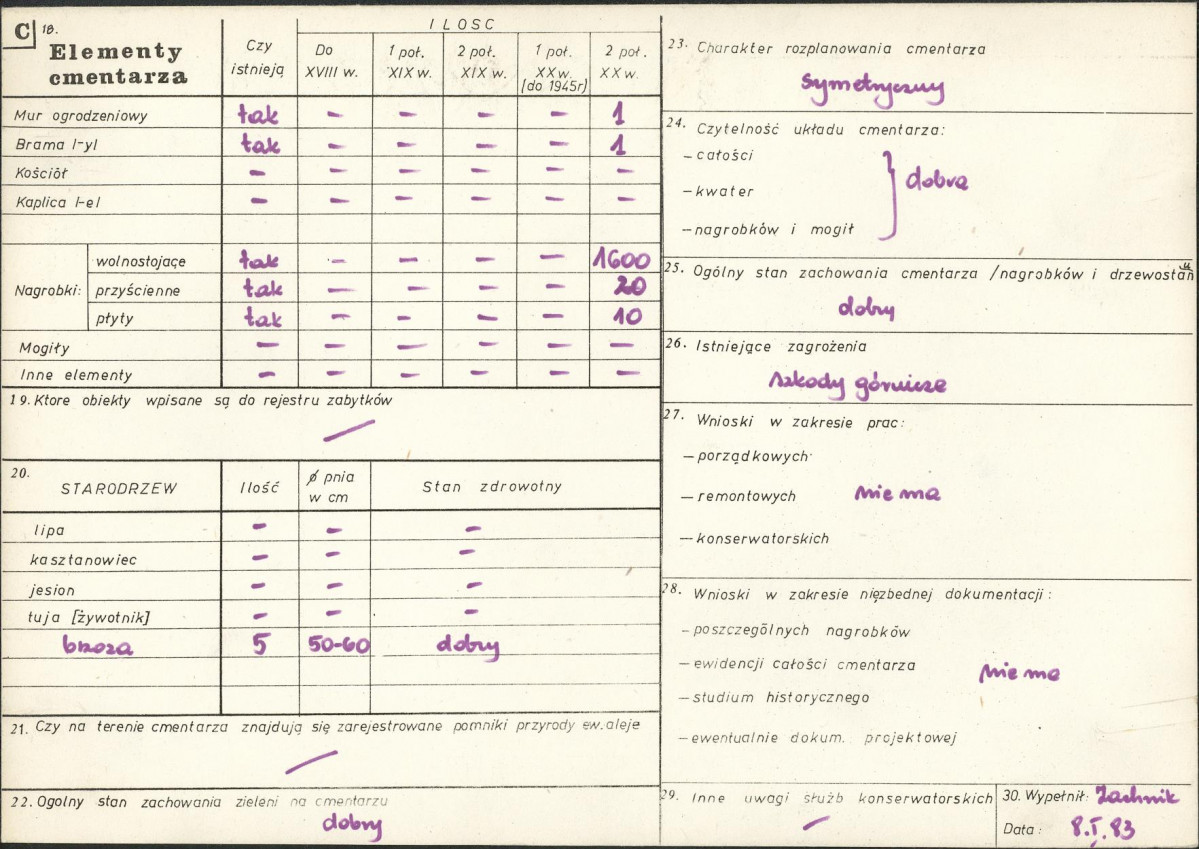 C 18.
Elementy cmentarza
Czy istnieją
ILOSC
Do XVIII w.
1 poł. XIX w.
2 poł. XIX w.
1 poł. XX w. [do 1945r]
2 poł. XX w.
Mur ogrodzeniowy tak — — — — 1
Brama /-y/ tak — — — — 1
Kościół — — — — — —
Kaplica /-e/ — — — — — —
Nagrobki: wolnostojące tak — — — — 1600
przyścienne tak — — — — 20
płyty tak — — — — 10
Mogiły — — — — — —
Inne elementy — — — — — —
19. Ktore obiekty wpisane są do rejestru zabytków
—
20.
STARODRZEW Ilość ø pnia w cm Stan zdrowotny
lipa — — —
kasztanowiec — — —
jesion — — —
tuja [żywotnik] — — —
brzoza 5 50-60 dobry
21. Czy na terenie cmentarza znajdują się zarejestrowane pomniki przyrody ew. aleje
—
22. Ogolny stan zachowania zieleni na cmentarzu
dobry
23. Charakter rozplanowania cmentarza
symetryczny
24. Czytelność układu cmentarza:
— całości
— kwater
— nagrobków i mogił
dobra
25. Ogólny stan zachowania cmentarza /nagrobków i drzewostanu
dobry
26. Istniejące zagrożenia
szkody górnicze
27. Wnioski w zakresie prac:
— porządkowych
— remontowych nie ma
— konserwatorskich
28. Wnioski w zakresie niezbędnej dokumentacji:
— poszczególnych nagrobków
— ewidencji całości cmentarza nie ma
— studium historycznego
— ewentualnie dokum. projektowej
29. Inne uwagi służb konserwatorskich
—
30. Wypełnił: Zachnik
Data: 8.I.83